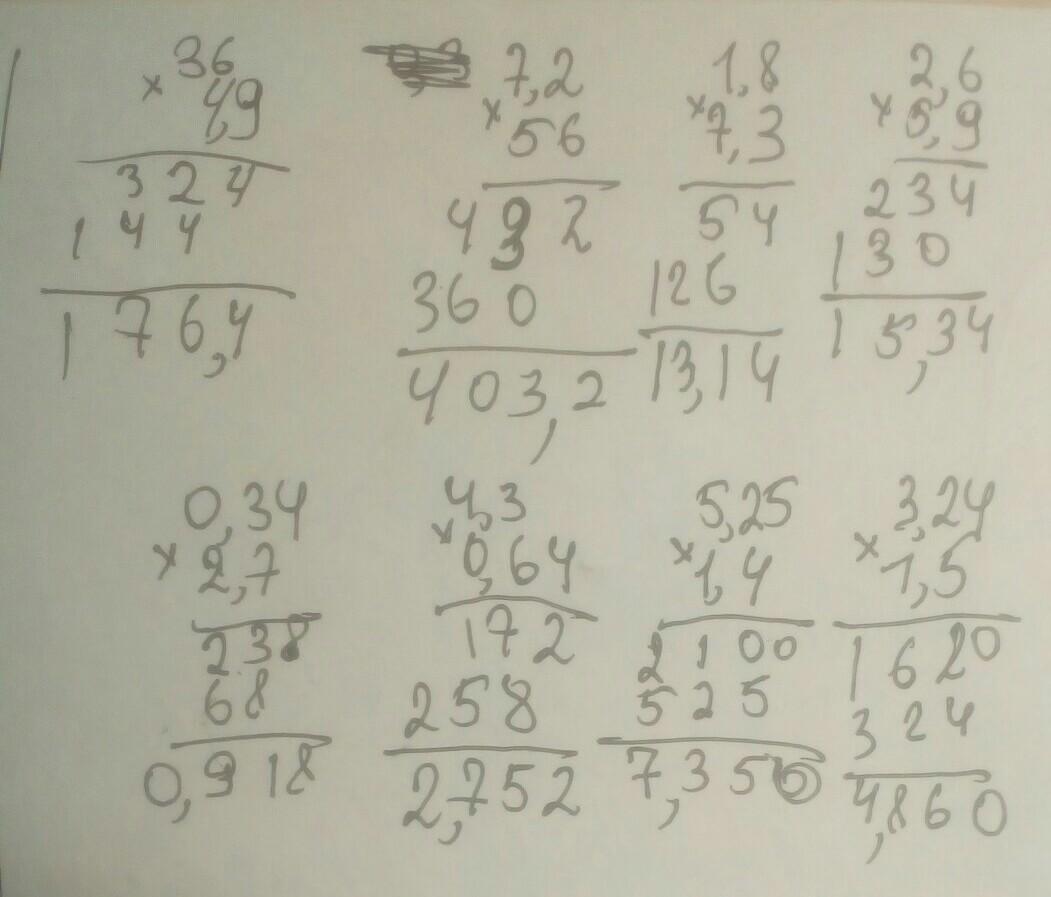 36
× 4,9
324
144
176,4
7,2
× 56
432
360
403,2
1,8
× 7,3
54
126
13,14
2,6
× 5,9
234
130
15,34
0,34
× 2,7
238
68
0,918
4,3
× 0,64
172
258
2,752
5,25
× 1,4
2100
525
7,350
3,24
× 1,5
1620
324
4,860